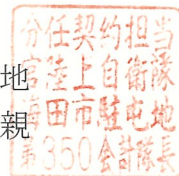 地
親
分任契約担当
官陸上自衛隊
海田市駐屯地
第350会計隊長